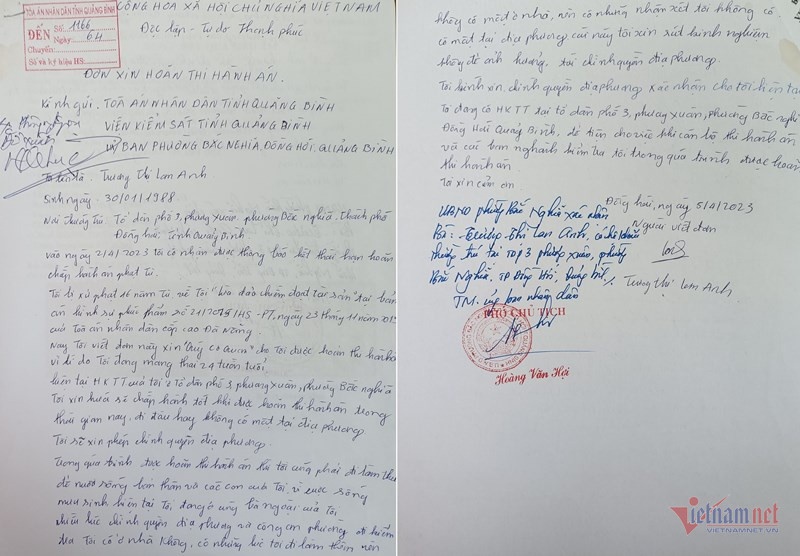 TOÀ ÁN NHÂN DÂN TỈNH QUẢNG BÌNH
ĐẾN Số: 1166
Ngày: 6.4
Chuyển:
Số và ký hiệu HS:
CỘNG HÒA XÃ HỘI CHỦ NGHĨA VIỆT NAM
Độc lập - Tự do Hạnh phúc
ĐƠN XIN HOÃN THI HÀNH ÁN.
Kính gửi: TOÀ ÁN NHÂN DÂN TỈNH QUẢNG BÌNH
VIỆN KIỂM SÁT TỈNH QUẢNG BÌNH
UỶ BAN PHƯỜNG BẮC NGHĨA, ĐỒNG HỚI, QUẢNG BÌNH
Trương Thị Lan Anh
Sinh ngày: 30/01/1988
Nơi thường trú: Tổ dân phố 3, phường Xuân, phường Bắc Nghĩa, Thành phố
Đồng hới, Tỉnh Quảng Bình.
vào ngày 21/4/2023 tôi có nhận được thông báo hết thời hạn hoãn
chấp hành án phạt tù.
Tôi bị xử phạt 16 năm tù về tội "Lừa đảo chiếm đoạt tài sản" tại bản
án hình sự phúc thẩm số 21/2019/HS-PT, ngày 23 tháng 11 năm
của toà án nhân dân cấp cao Đà Nẵng
Nay Tôi viết đơn này xin "Quý cơ quan" cho Tôi được hoãn thi hành
vì lí do Tôi đang mang thai 24 tuần tuổi
hiện tại HKTT của tôi ở Tổ dân phố 3 phường Xuân, phường Bắc Nghĩa
Tôi xin hứa sẽ chấp hành tốt khi được hoãn thi hành án trong
thời gian này. đi đâu hay không có mặt tại địa phương
Tôi sẽ xin phép chính quyền địa phương.
Trong quá trình được hoãn thi hành án thì tôi cũng phải đi làm
để nuôi sống bản thân và các con của Tôi, vì cuộc sống
mưu sinh hiện tại Tôi đang ở cùng bà ngoại của tôi
nhiều lúc chính quyền địa phương và công an phường đi kiểm
tra Tôi có ở nhà không, có những lúc tôi đi làm thêm nên
không có mặt ở nhà, nên có những nhận xét tôi không có
có mặt tại địa phương. cái này tôi xin rút kinh nghiệm
không để ảnh hưởng tới chính quyền địa phương.
Tôi kính xin chính quyền địa phương xác nhận cho tôi hiện tại
Tôi đang có HKTT tại tổ dân phố 3, phường Xuân, phường Bắc nghĩa
Đồng Hới Quảng Bình, để tiện cho việc khi cán bộ thi hành án
và các ban nghành kiểm tra tôi trong quá trình được hoãn
thi hành án
Tôi xin cảm ơn
Đồng hới, ngày 5/4/2023
Người viết đơn
Trương thị Lan Anh
UBND phường Bắc Nghĩa xác nhận
Bà: Trương Thị Lan Anh, có hộ khẩu
thường trú tại TDP 3 phường Xuân, phường
Bắc Nghĩa, TP Đồng Hới, Quảng Bình./.
TM. Uỷ ban nhân dân
PHÓ CHỦ TỊCH
Hoàng Văn Hội
Vietnamnet
VIETNAMNET.VN